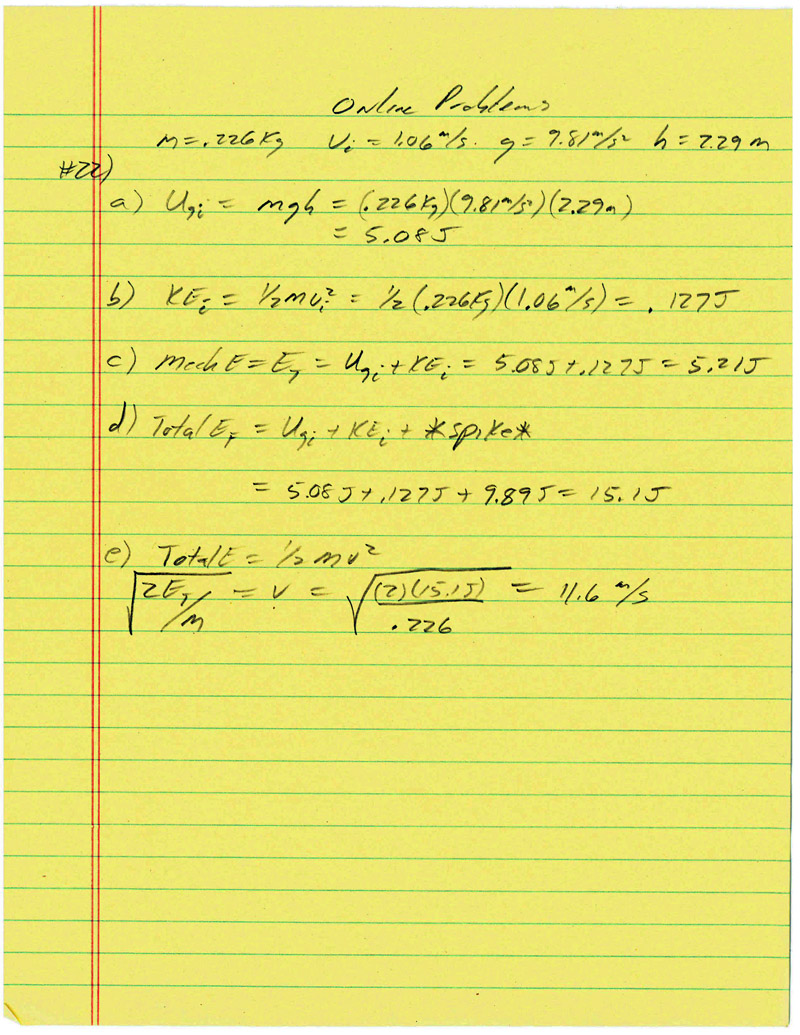 Online Problems
m = .226 Kg   Vi = 1.06 m/s.   g = 9.81 m/s²   h = 2.29 m
#22)
a) Ugi = mgh = (.226 Kg)(9.81 m/s²)(2.29 m)
= 5.08 J
b) KEi = 1/2 m vi² = 1/2 (.226 Kg)(1.06 m/s) = .127 J
c) Mech E = ET = Ugi + KEi = 5.08 J + .127 J = 5.21 J
d) Total EF = Ugi + KEi + *spike*
= 5.08 J + .127 J + 9.89 J = 15.1 J
e) Total E = 1/2 m v²
√(2ET/m) = v = √((2)(15.1 J)/.226) = 11.6 m/s